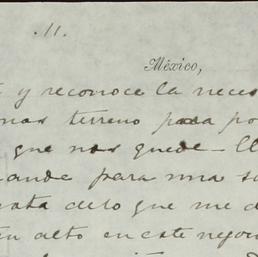 .11.
México,
y reconoce la neces
terreno para po
que nos quede - ll
ande para una s
que me d
alto en este nego